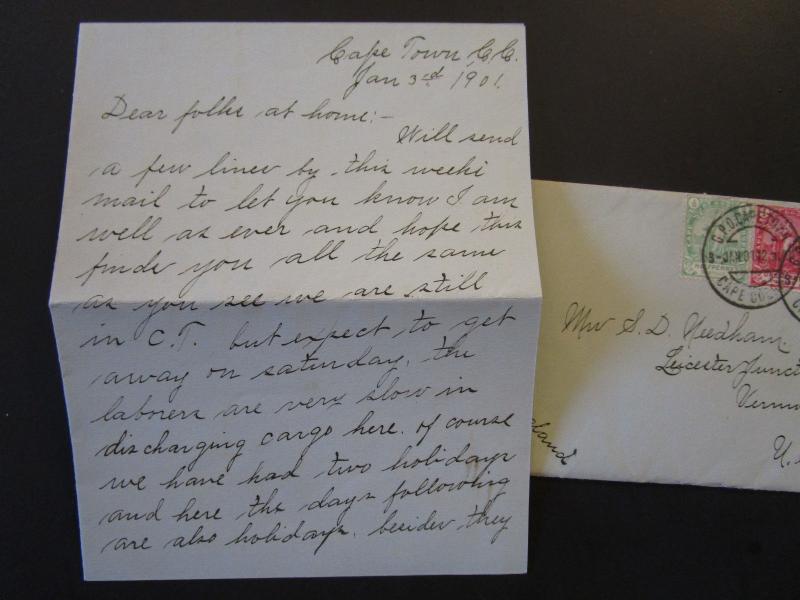 Cape Town, C.C.
Jan 3rd 1901.
Dear folks at home:-
Will send
a few lines by this weeks
mail to let you know I am
well as ever and hope this
finds you all the same
as you see we are still
in C.T. but expect to get
away on saturday, the
laborers are very slow in
discharging cargo here. of course
we have had two holidays
and here the days following
are also holidays. besides they
G.P.O. CAPE TOWN
3-JAN 01 12.
CAPE GOO
Mrs S. D. Needham.
Leicester Junct
Vermo
U.
land